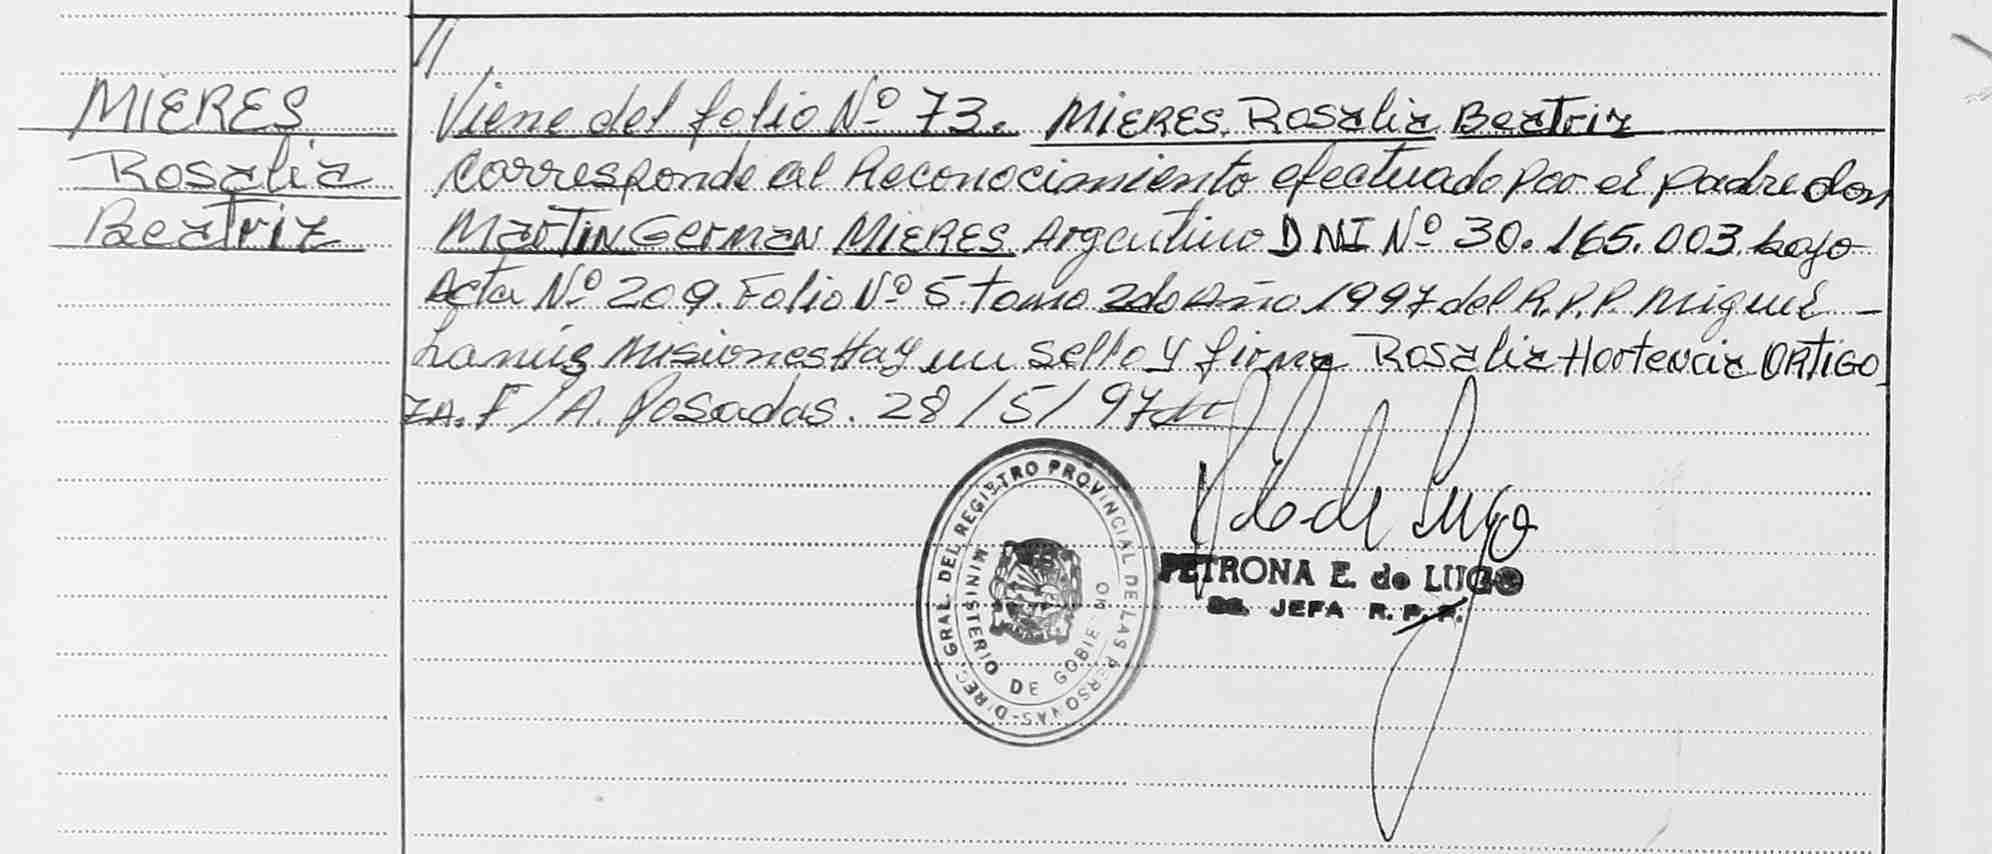 //
MIERES
Rosalia
Beatriz
Viene del folio Nº 73. MIERES, Rosalia Beatriz
corresponde al Reconocimiento efectuado por el padre don
Martin German MIERES Argentino DNI Nº 30.165.003 bajo
Acta Nº 209. Folio Nº 5. tomo 2do Año 1997 del R.P.P. Miguel
Lanús Misiones Hay un sello y firma Rosalia Hortencia ORTIGO
ZA. F/A. Posadas. 28/5/97
DIREC. GRAL. DEL REGISTRO PROVINCIAL DE LAS PERSONAS-
MINISTERIO DE GOBIERNO
P. E. de Lugo
PETRONA E. de LUGO
JEFA R. P. P.